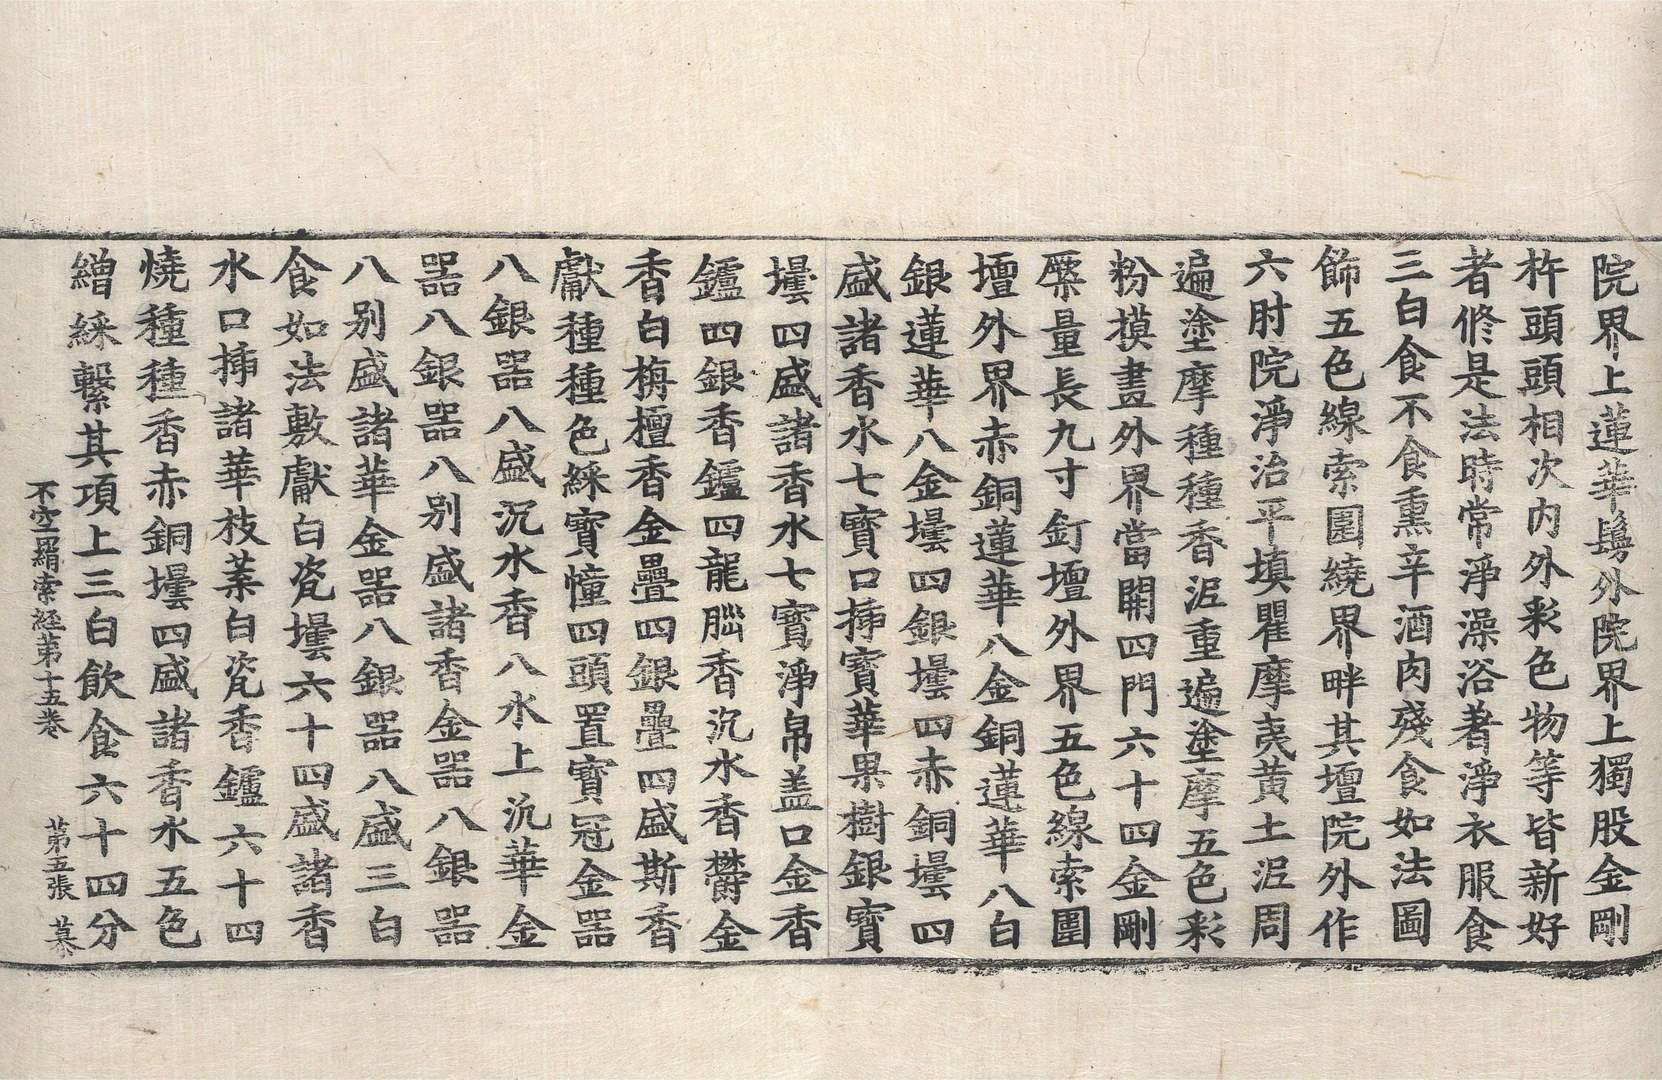 院界上蓮華鬘外院界上獨股金剛
杵頭頭相次內外彩色物等皆新好
者修是法時常淨澡浴著淨衣服食
三白食不食熏辛酒肉殘食如法圖
飾五色線索圍繞界畔其壇院外作
六肘院淨治平填瞿摩夷黃土泥周
遍塗摩種種香泥重遍塗摩五色彩
粉摸畫外界當開四門六十四金剛
橜量長九寸釘壇外界五色線索圍
壇外界赤銅蓮華八金銅蓮華八白
銀蓮華八金罎四銀罎四赤銅罎四
盛諸香水七寶口揷寶華果樹銀寶
罎四盛諸香水七寶淨帛盖口金香
鑪四銀香鑪四龍腦香沉水香欎金
香白栴檀香金疊四銀疊四盛斯香
獻種種色綵寶幢四頭置寶冠金器
八銀器八盛沉水香八水上沉華金
器八銀器八別盛諸香金器八銀器
八別盛諸華金器八銀器八盛三白
食如法敷獻白瓷罎六十四盛諸香
水口揷諸華枝葉白瓷香鑪六十四
燒種種香赤銅罎四盛諸香水五色
繒綵繫其項上三白飲食六十四分
不空羂索經第十五卷 第五張 慕